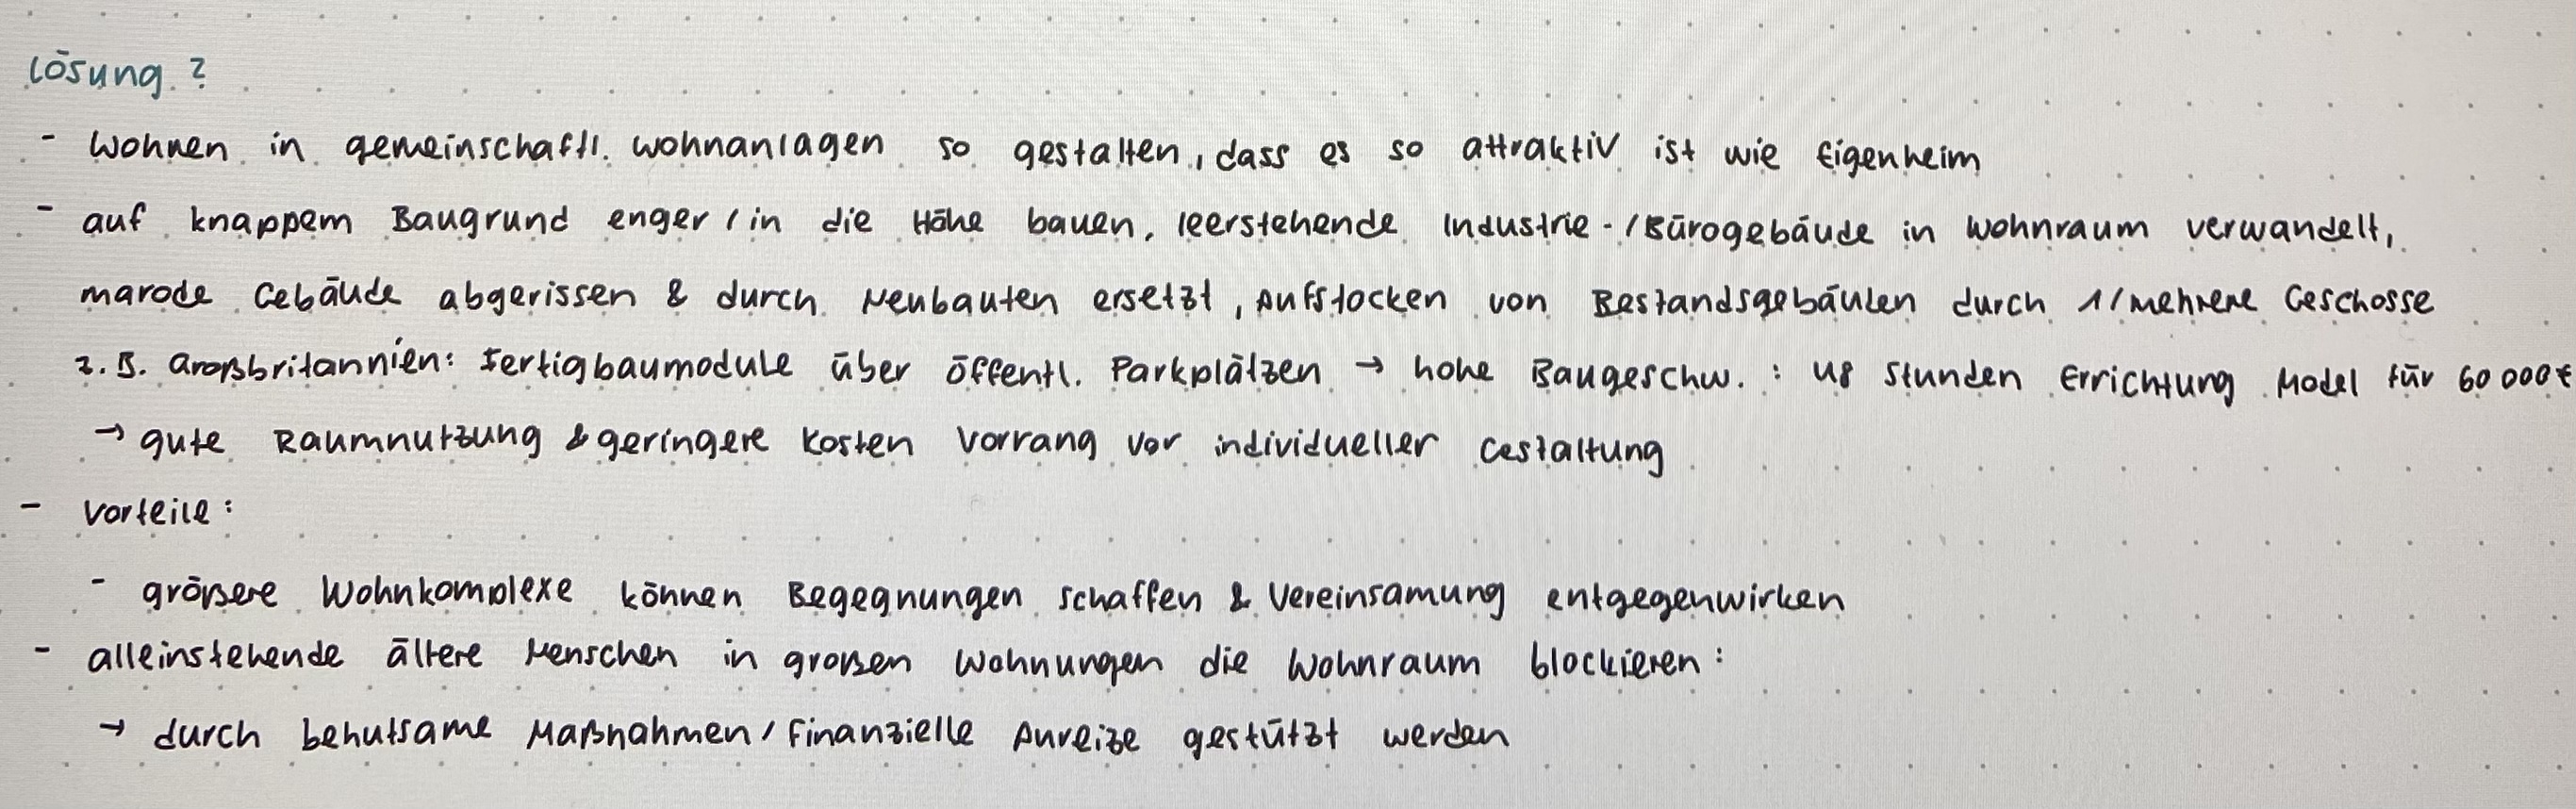 Lösung ?
- Wohnen in gemeinschaftl. Wohnanlagen so gestalten, dass es so attraktiv ist wie Eigenheim
- auf knappem Baugrund enger / in die Höhe bauen, leerstehende Industrie-/Bürogebäude in Wohnraum verwandelt,
marode Gebäude abgerissen & durch Neubauten ersetzt, Aufstocken von Bestandsgebäuden durch 1/mehrere Geschosse
z.B. Großbritannien: Fertigbaumodule über öffentl. Parkplätzen → hohe Baugeschw. : 48 Stunden Errichtung Model für 60 000€
→ gute Raumnutzung & geringere Kosten Vorrang vor individueller Gestaltung
- Vorteile:
- größere Wohnkomplexe können Begegnungen schaffen & Vereinsamung entgegenwirken
- alleinstehende ältere Menschen in großen Wohnungen die Wohnraum blockieren:
→ durch behutsame Maßnahmen / finanzielle Anreize gestützt werden